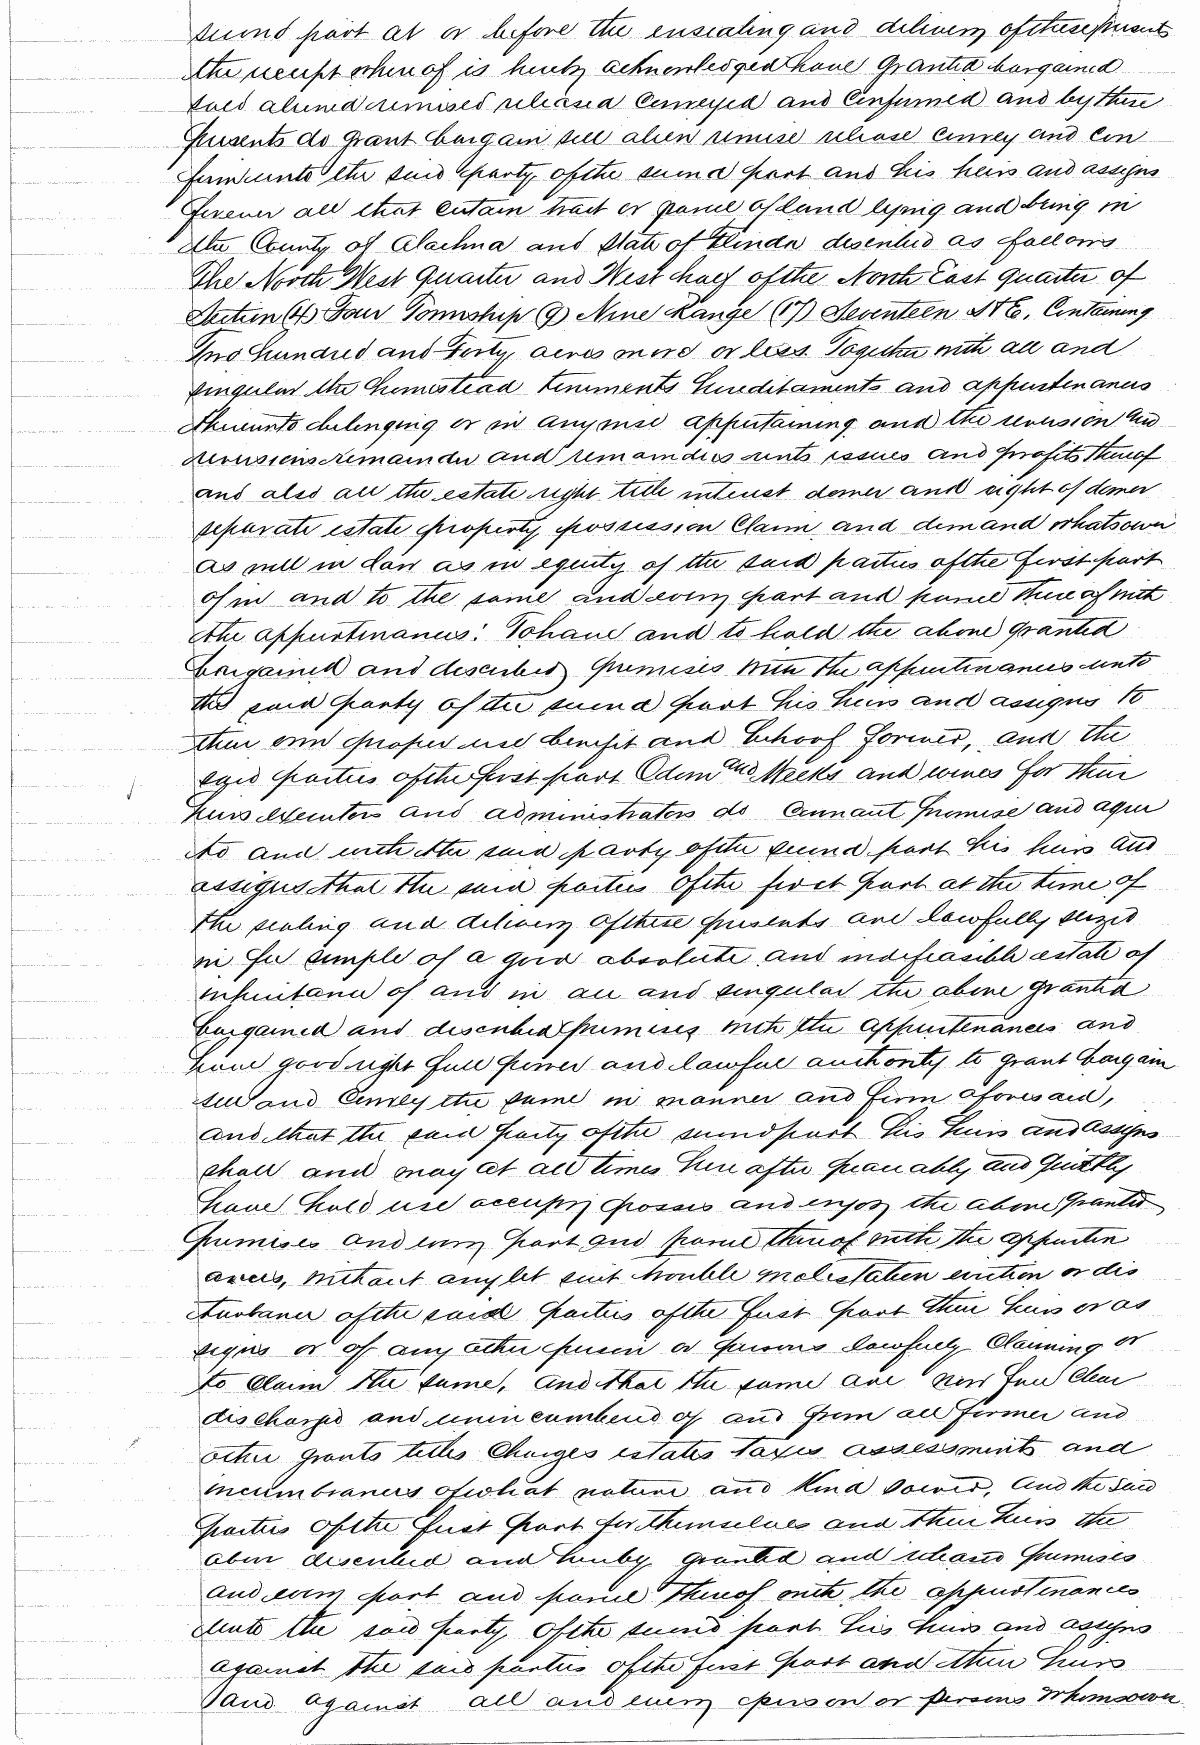 second part at or before the ensealing and delivery of these presents
the receipt whereof is hereby acknowledged have granted bargained
sold aliened remised released Conveyed and Confirmed and by these
presents do grant bargain sell alien remise release Convey and Con
firm unto the said party of the second part and his heirs and assigns
forever all that certain tract or parcel of land lying and being in
the County of Alachua and State of Florida described as follows
The North West Quarter and West half of the North East quarter of
Section (4) Four Township (9) Nine Range (17) Seventeen S & E, Containing
Two hundred and Forty acres more or less. Together with all and
singular the homestead tenements hereditaments and appurtenances
thereunto belonging or in anywise appertaining and the reversion and
reversions remainder and remainders rents issues and profits thereof
and also all the estate right title interest dower and right of dower
separate estate property possession Claim and demand whatsoever
as well in law as in equity of the said parties of the first part
of in and to the same and every part and parcel thereof with
the appurtenances: To have and to hold the above granted
bargained and described premises with the appurtenances unto
the said party of the second part his heirs and assigns to
their own proper use benefit and behoof forever, and the
said parties of the first part Odom and Weeks and wives for their
heirs executors and administrators do Connant promise and agree
to and with the said party of the second part his heirs and
assigns that the said parties of the first part at the time of
the sealing and delivery of these presents are lawfully seized
in fee simple of a good absolute and indefeasible estate of
inheritance of and in all and singular the above granted
bargained and described premises with the appurtenances and
have good right full power and lawful authority to grant bargain
sell and Convey the same in manner and form aforesaid,
and that the said party of the second part his heirs and assigns
shall and may at all times hereafter peaceably and quietly
have hold use occupy possess and enjoy the above granted
premises and every part and parcel thereof with the appurten
ances, without any let suit trouble molestation eviction or dis
turbance of the said parties of the first part their heirs or as
signs or of any other person or persons lawfully Claiming or
to Claim the same, and that the same are now free Clear
discharged and unincumbered of and from all former and
other grants titles Charges estates taxes assessments and
incumbrances of what nature and kind soever, and the said
parties of the first part for themselves and their heirs the
above described and hereby granted and released premises
and every part and parcel thereof with the appurtenances
unto the said party of the second part his heirs and assigns
against the said parties of the first part and their heirs
and against all and every person or persons whomsoever